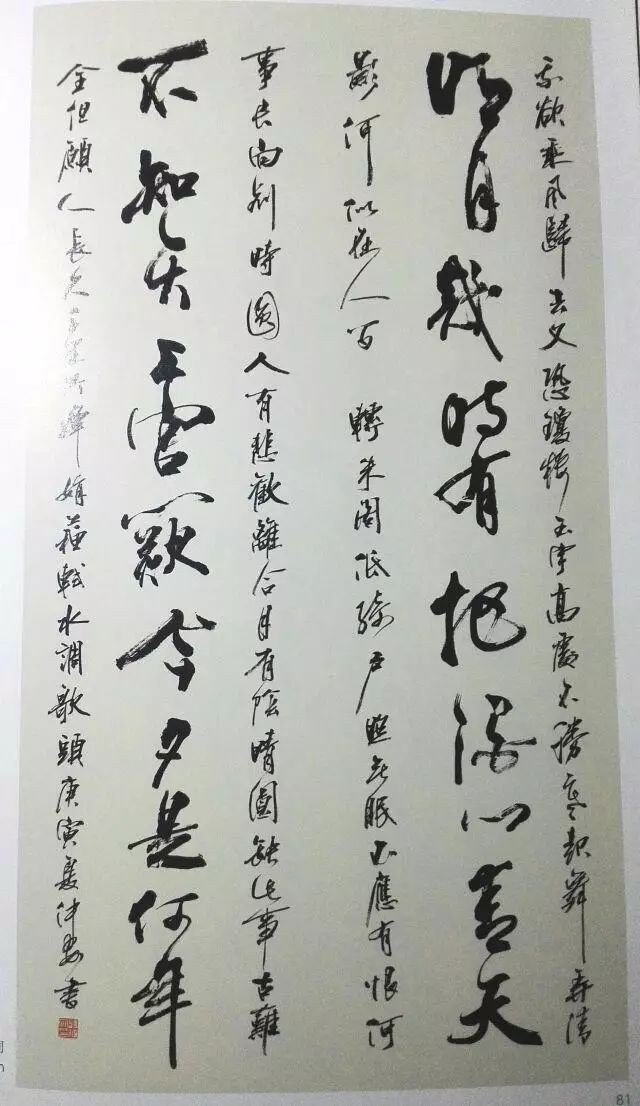 明月幾時有把酒問青天
不知天上宮闕今夕是何年
我欲乘風歸去又恐瓊樓玉宇高處不勝寒起舞弄清
影何似在人間轉朱閣低綺戶照無眠不應有恨何
事長向別時圓人有悲歡離合月有陰晴圓缺此事古難
全但願人長久千里共嬋娟蘇軾水調歌頭庚寅夏仲書
81